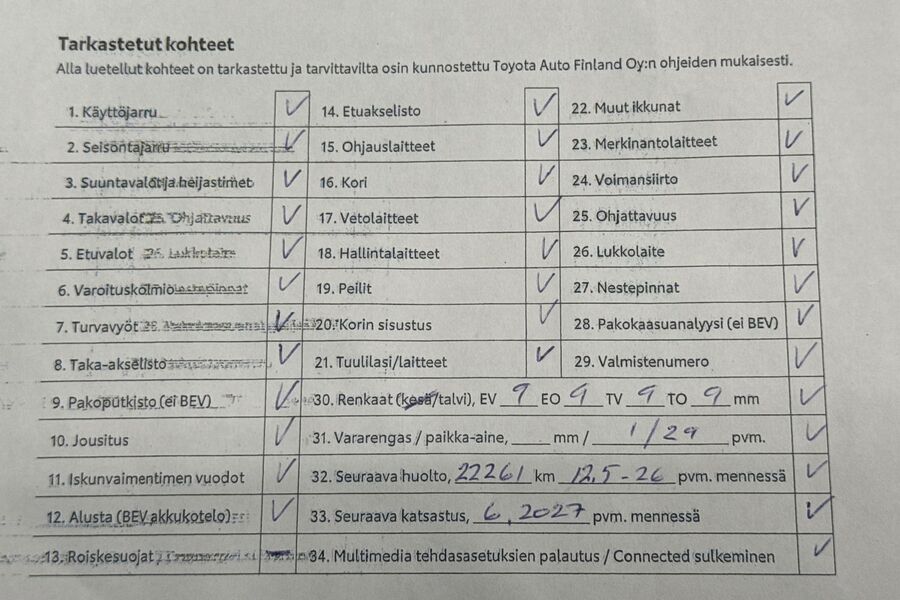 Tarkastetut kohteet
Alla luetellut kohteet on tarkastettu ja tarvittavilta osin kunnostettu Toyota Auto Finland Oy:n ohjeiden mukaisesti.
1. Käyttöjarru ✓ 14. Etuakselisto ✓ 22. Muut ikkunat ✓
2. Seisontajarru ✓ 15. Ohjauslaitteet ✓ 23. Merkinantolaitteet ✓
3. Suuntavalot ja heijastimet ✓ 16. Kori ✓ 24. Voimansiirto ✓
4. Takavalot 25. Ohjattavuus ✓ 17. Vetolaitteet ✓ 25. Ohjattavuus ✓
5. Etuvalot 26. Lukkolaite ✓ 18. Hallintalaitteet ✓ 26. Lukkolaite ✓
6. Varoituskolmio ✓ 19. Peilit ✓ 27. Nestepinnat ✓
7. Turvavyöt 28. ✓ 20. Korin sisustus ✓ 28. Pakokaasuanalyysi (ei BEV) ✓
8. Taka-akselisto ✓ 21. Tuulilasi/laitteet ✓ 29. Valmistenumero ✓
9. Pakoputkisto (ei BEV) ✓ 30. Renkaat (kesä/talvi), EV 9 EO 9 TV 9 TO 9 mm ✓
10. Jousitus ✓ 31. Vararengas / paikka-aine, ____ mm / 1/29 pvm. ✓
11. Iskunvaimentimen vuodot ✓ 32. Seuraava huolto, 22261 km 12.5-26 pvm. mennessä ✓
12. Alusta (BEV akkukotelo) ✓ 33. Seuraava katsastus, 6.2027 pvm. mennessä ✓
13. Roiskesuojat — 34. Multimedia tehdasasetuksien palautus / Connected sulkeminen ✓